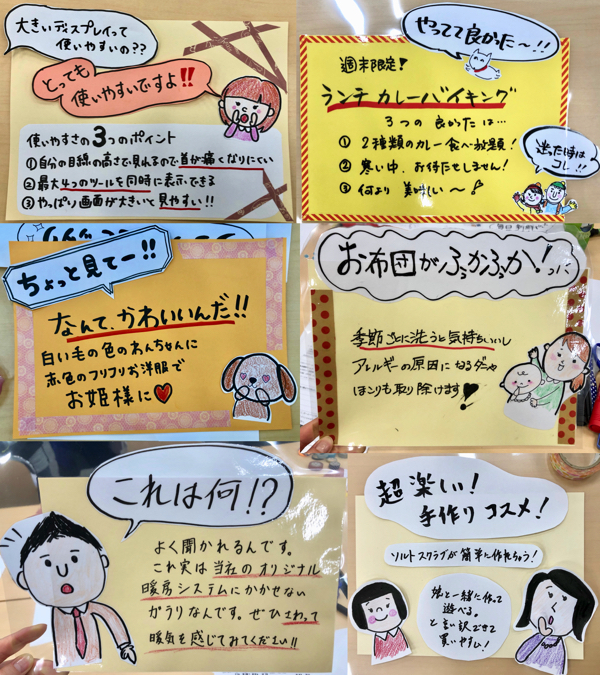 大きいディスプレイって
使いやすいの??
とっても
使いやすいですよ!!
使いやすさの3つのポイント
①自分の目線の高さで見れるので首が痛くなりにくい
②最大4つのツールを同時に表示できる
③やっぱり画面が大きいと見やすい!!
やってて良かた〜!!
週末限定!
ランチカレーバイキング
3つの良かたは…
① 2種類のカレー食べ放題!
② 寒い中、お待たせしません!
③ 何より美味しい〜!
迷った時は
コレ!!
ちょっと見てー!!
なんて、かわいいんだ!!
白い毛の色のわんちゃんに
赤色のフリフリお洋服で
お姫様に♥
お布団がふっかふか!
季節ごとに洗うと気持ちいいし
アレルギーの原因になるダニや
ほこりも取り除けます!
これは何!?
よく聞かれるんです。
これ実は当社のオリジナル
暖房システムにかかせない
がラリなんです。ぜひさわって
暖気を感じてみてください!!
超楽しい!
手作りコスメ!
ソルトスクラブが簡単に作れちゃう!
娘と一緒に作って
遊べる。
と言い訳できて
買いやすい!